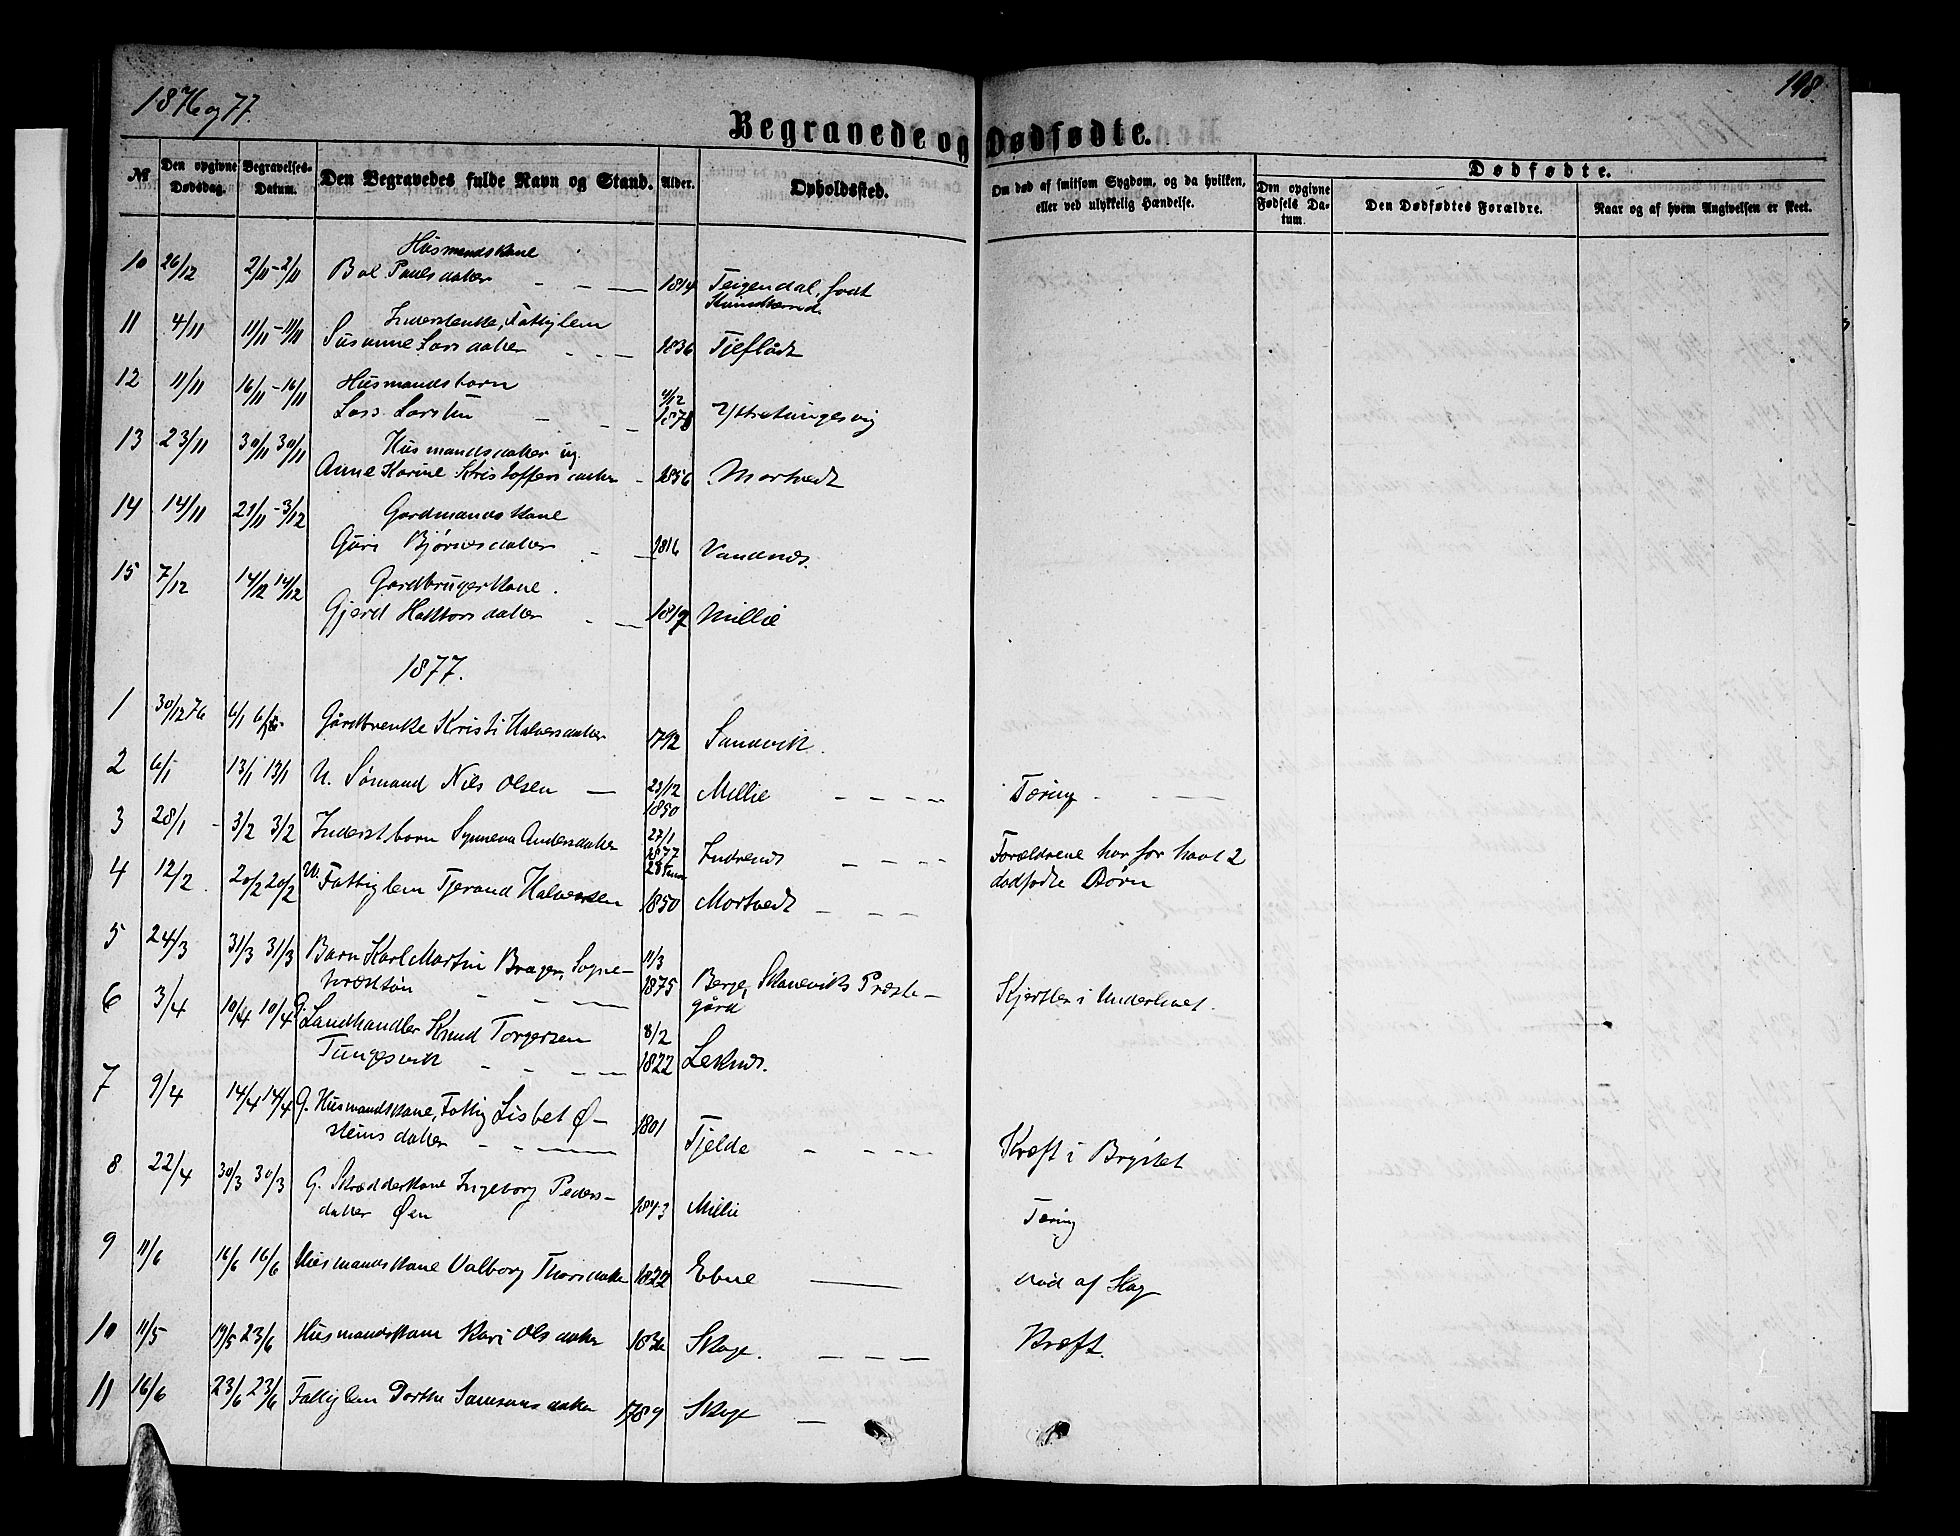 1876 og 77.
198.
Begravede og Dødfødte.
№
Den opgivne Dødsdag.
Begravelses-Datum.
Den Begravedes fulde Navn og Stand.
Alder.
Opholdssted.
Om død af smitsom Sygdom, og da hvilken, eller ved ulykkelig Hændelse.
Dødfødte.
Den opgivne Fødsels Datum.
Den Dødfødtes Forældre.
Naar og af hvem Angivelsen er skeet.
10 26/12 2/11 - 2/11 Husmandskone
Pauls datter 1814 Teigendal, født
11 4/11 11/11 - 11/11 Inderstenke, Fattiglem
Susanne Lars datter 1836 Fjeflådt
12 11/11 16/11 - 16/11 Husmandsbarn
Lars Larsen 4/12 187 Ytretungesvig
13 23/11 30/11 30/11 Husmandsdatter ug.
Anne Karine Kristoffers datter 1856 Mortvedt
14 14/11 21/11 - 3/12 Gardmandskone
Guri Bjørnes datter 1816 Vandnes.
15 7/12 14/12 14/12 Gardbrugerkone.
Gjerd datter Millie
1877.
1 30/12 76 6/1 6/1 Gårdbrenke Kristi Halvors datter 1792 Sandvik.
2 6/1 13/1 13/1 U. Sømand Nils Olsen 23/12 1850 Millie Tæring
3 28/1 3/2 3/2 Inderstbarn Synneva Andersdatter 27/1 1877 Indrenes Forældrene har før havt 2
dødfødte Børn
4 12/2 20/2 20/2 U. Fattiglem Tjerand Halvorsen 1850 Mortvedt
5 24/3 31/3 31/3 Barn Karl Martin Brager, Sogne-
præstsøn 11/3 1875 Berge, Skaneviks Præste-
gård Kjertler i Underlivet.
6 3/4 10/4 10/4 G. Landhandler Knud Torgersen
Tungesvik 8/2 1822 Leknes.
7 9/4 14/4 14/4 G. Husmandskone, Fattig Lisbet Ø-
steins datter 1801 Fjelde Kræft i Brystet
8 22/4 30/3 30/3 G. Skrædderkone Ingeborg Peders-
datter Øen 1843 Millie Tæring
9 11/6 16/6 16/6 Husmandskone Valborg Thorsdatter 1822 Ebne død af Slag
10 11/5 19/5 23/6 Husmandskone Kari Ols datter 183 Skage. Kræft.
11 16/6 23/6 23/6 Fattiglem Dorthe Samsons datter 1789 Skage